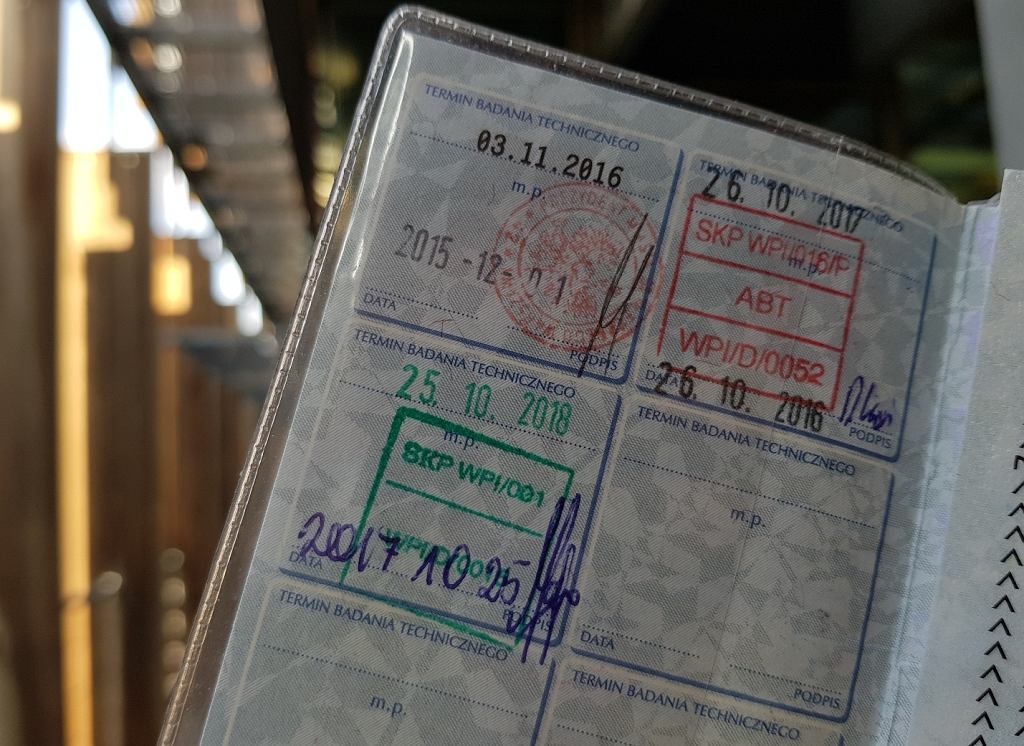 TERMIN BADANIA TECHNICZNEGO
03.11.2016
m.p.
2015 -12- 01
DATA
PODPIS
TERMIN BADANIA TECHNICZNEGO
26. 10. 2017
m.p.
SKP WPI/016/P
ABT
WPI/D/0052
DATA
26. 10. 2016
PODPIS
TERMIN BADANIA TECHNICZNEGO
25. 10. 2018
m.p.
SKP WPI/091
2017 10 25
DATA
PODPIS
TERMIN BADANIA TECHNICZNEGO
m.p.
DATA
PODPIS
TERMIN BADANIA TECHNICZNEGO
m.p.
TERMIN BADANIA TECHNICZNEGO